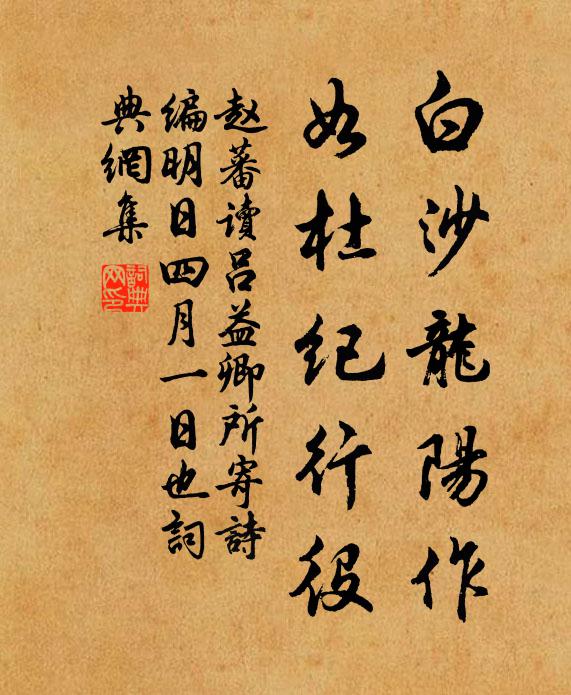 白沙龍陽作
如杜紀行役
赵蕃讀呂益卿所寄詩
編明日四月一日也詞
典網集
詞典
网印